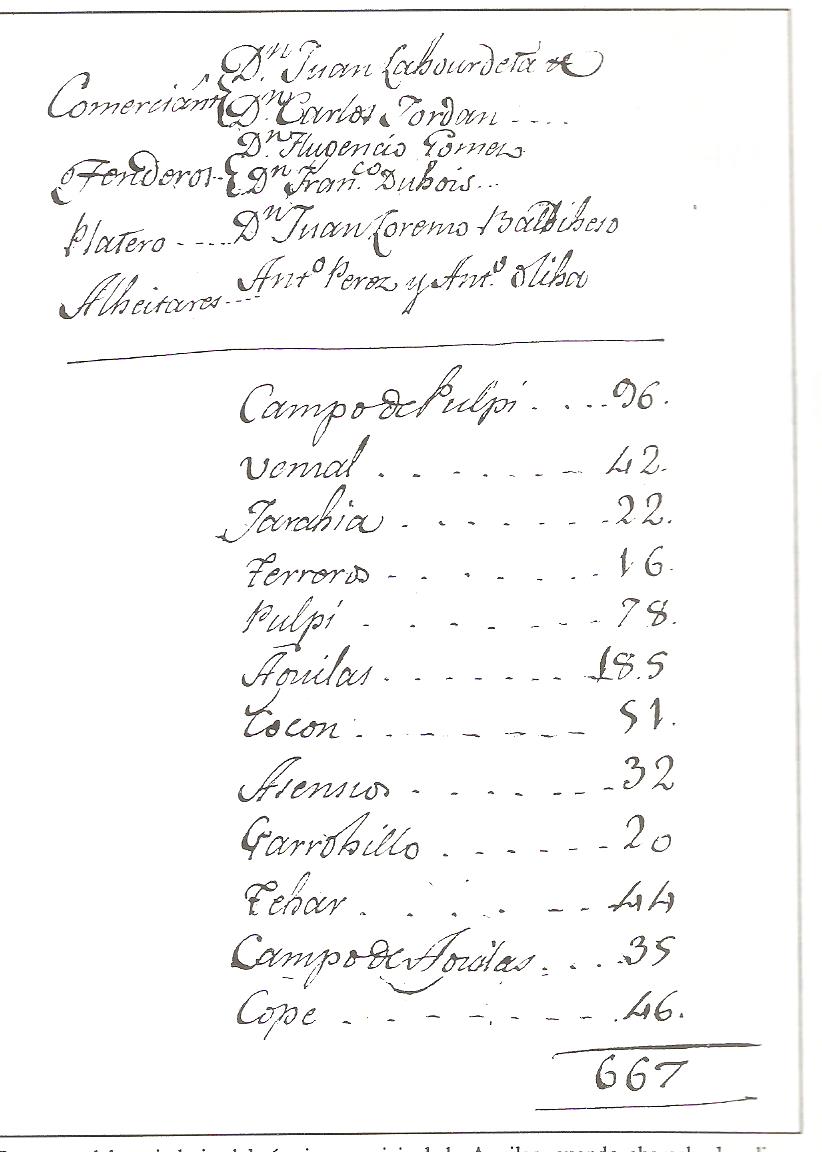 Comerciānt { Dⁿ. Juan Labourdeta
Dⁿ. Carlos Jordan ----
Tenderos -- { Dⁿ. Flugencio Gomez
Dⁿ. Fran.ᶜᵒ Dubois...
Platero ---- Dⁿ Juan Lorenso Balbibeso
Albeitares ---- Antº Perez y Ant.º Oliba
Campo de Pulpi . . . . 96.
Vensal . . . . . . - 42.
Jarabia . . . . . . . 22.
Terreros - . . . . . 16.
Pulpi . . . . . - - . 78.
Aguilas . . . . . . . 185
Cocon . . - - - - - 51.
Asensios . . . . . . . 32
Garrobillo . . - - - - 20
Tebar . . . . - - . 44
Campo de Aguilas . . . . 35
Cope . - - - . - - - . 46.
667